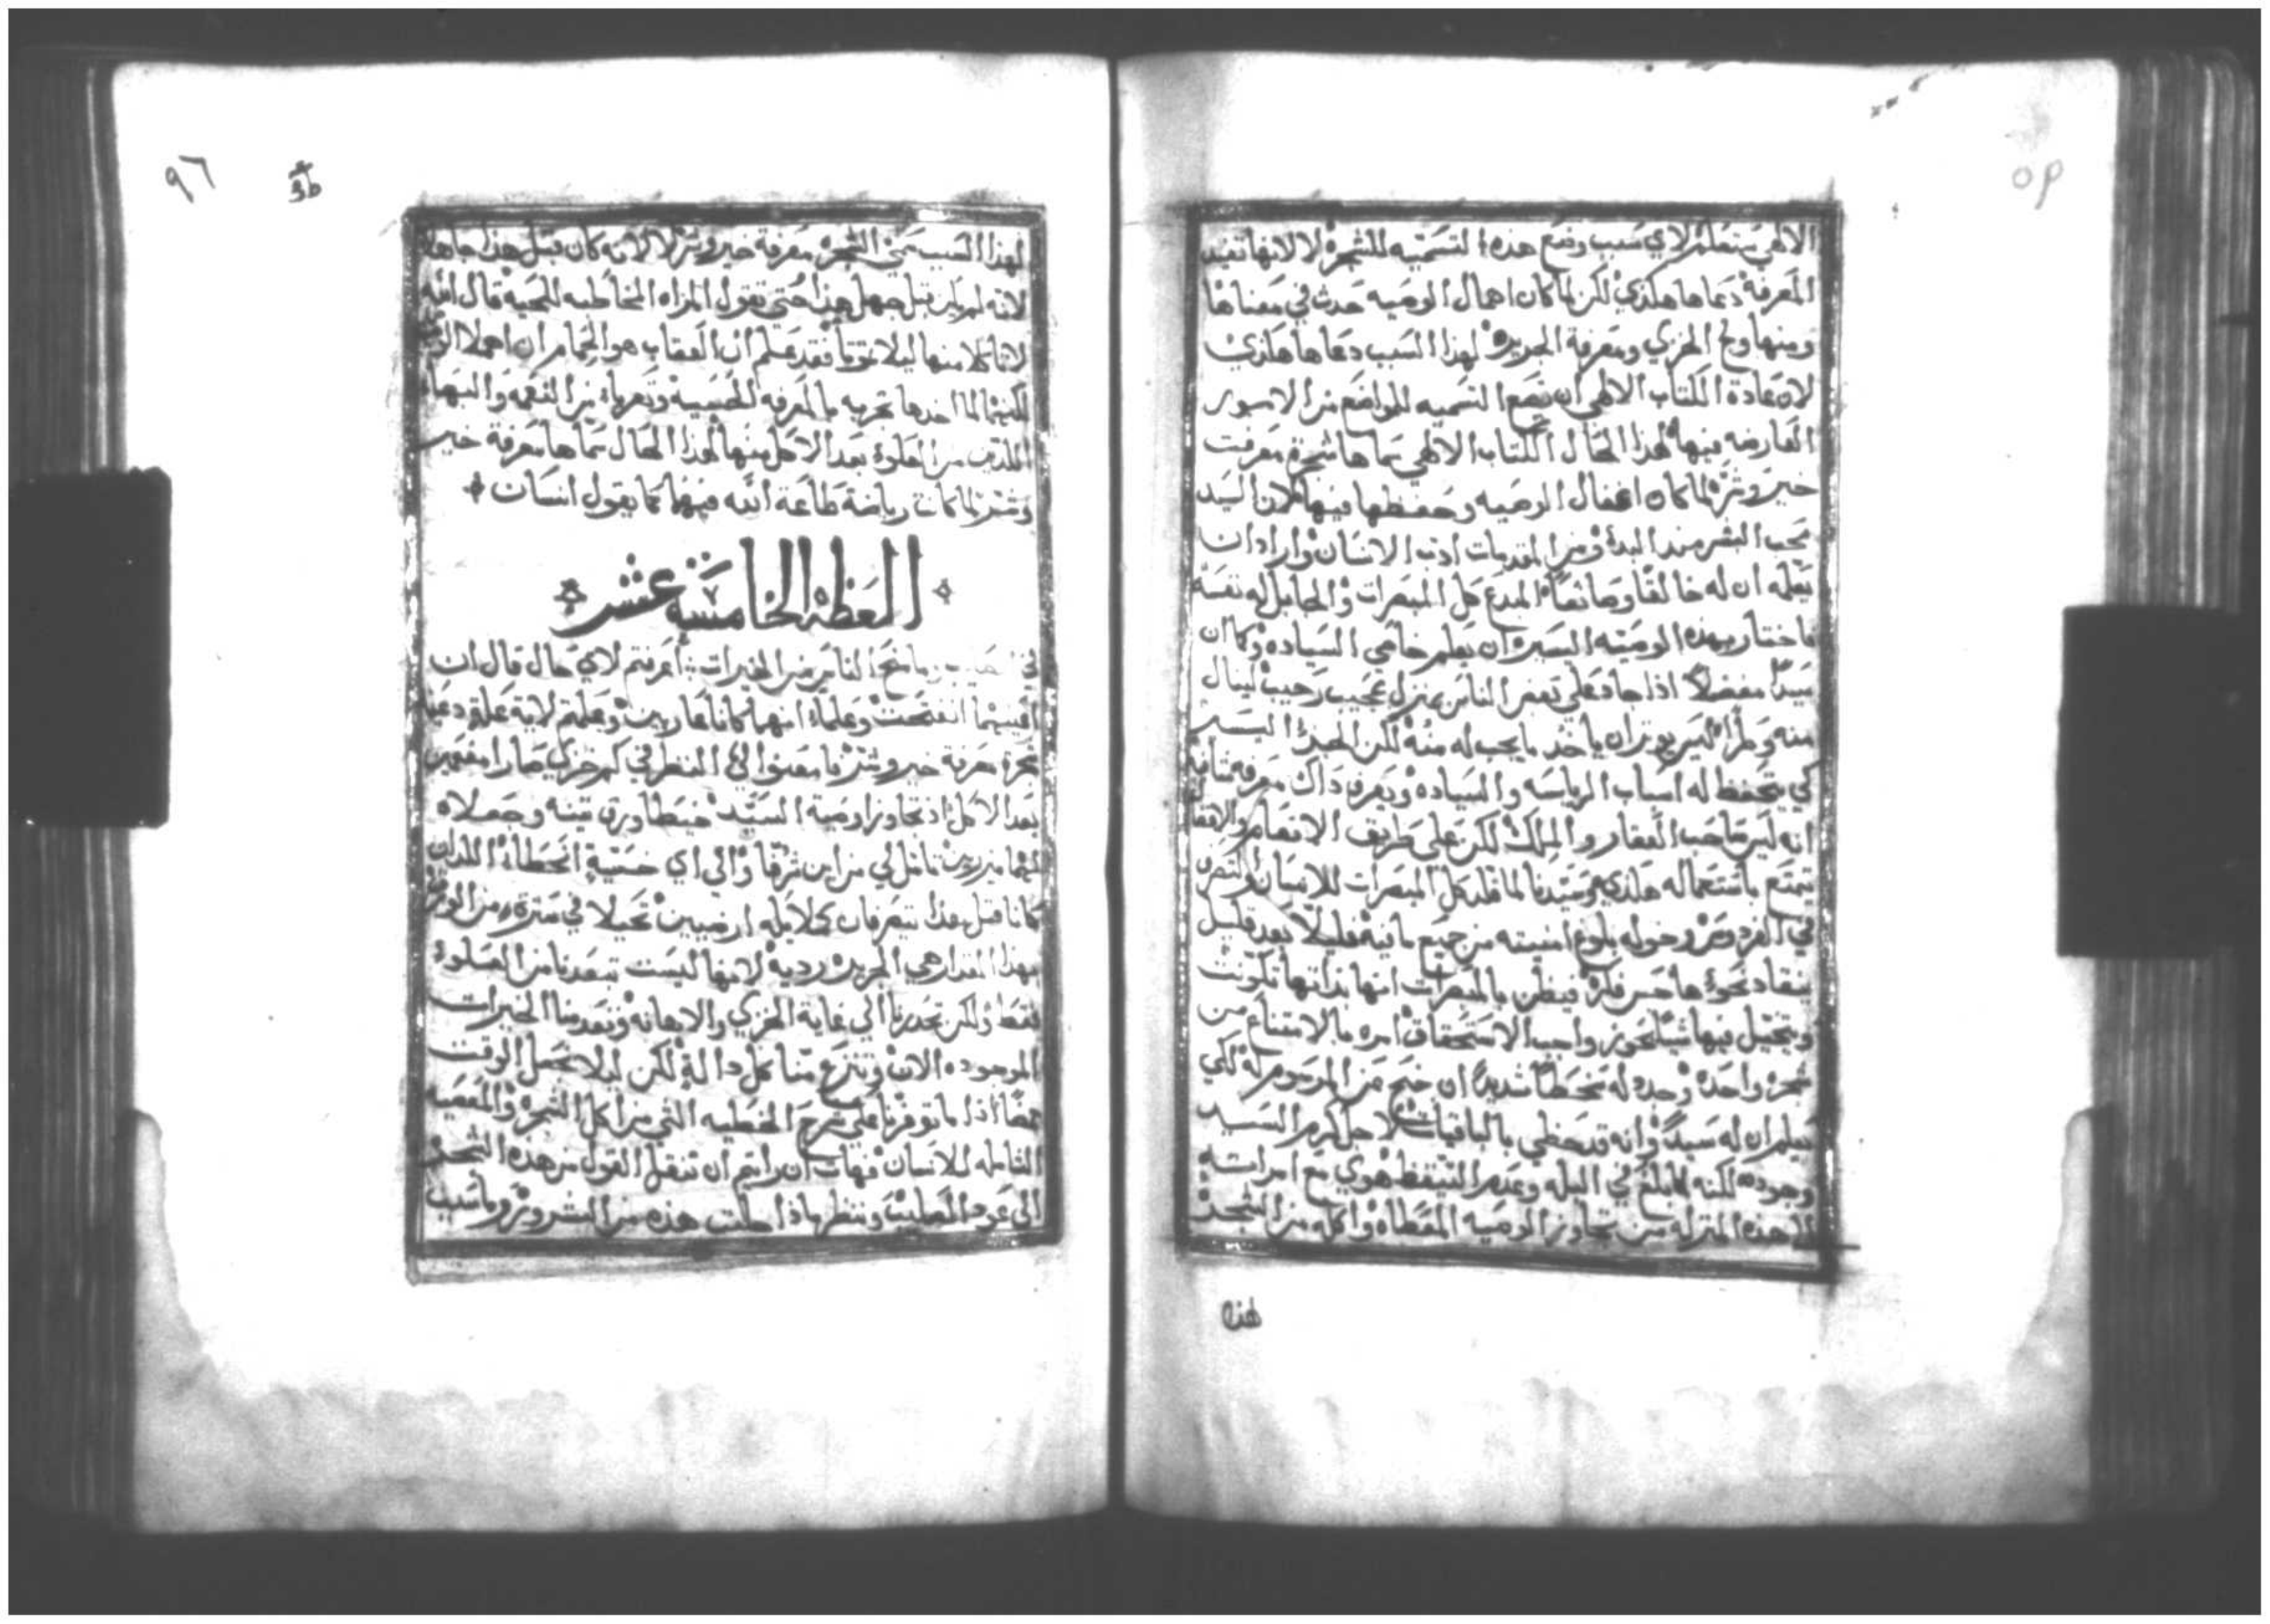 الالهي ستعلم لاي سبب وضع هذه التسميه للشجرة لا لانها تفيد
المعرفة دعاها هكذي لكن لما كان اهمال الوصيه حدث في معناها
ومنها ولج الخزي ومعرفة الجريرة لهذا السبب دعاها هكذي
لان عادة الكتاب الالهي ان يضع التسميه للمواضع من الامور
العارضه فيها لهذا الحال الكتاب الالهي سماها شجرة معرفت
خير وشر لما كان اغفال الوصيه وحفظها فيها لان السيد
محب البشر منذ البدء ومن المقدمات ادب الانسان واراد ان
يعلمه ان له خالقا وصانعا المبدع كل المبصرات والجابل له نفسه
فاختار بهذه الوصيه اليسيره ان يعلم خاصي السياده وكما ان
سيدا مفضلا اذا جاد علي بعض الناس بمنزل عجيب رحيب لينال
منه وطرا ليس يوثر ان ياخذ ما يجب له منه لكن الجزء اليسير
كي يتحفظ له اسباب الرياسه والسياده ويعرف ذاك معرفه شافية
انه ليس صاحب العقار والملك لكن علي طريق الانعام والافضال
تمتع باستعماله هكذي وسيدنا لما قلد كل المبصرات للانسان والتصرف
في الفردوس وخوله بلوغ امنيته من جميع ما فيه فليلا بعد قليل
ينقاد نحوه هاجس فكره فيظن بالمبصرات انها بذاتها تكونت
ويتخيل فيها شيا يجوز واجب الاستحقاق امره بالامتناع من
شجره واحده وحدد له سخطا شديدا ان جنح من المرسوم له لكي
يعلم ان له سيدا وانه قد حظي بالباقيات لاجل كرم السيد
وجوده لكنه لما بلغ في البله وعدم التيقظ هوي مع امراته
الي هذه المنزله من تجاوز الوصيه المعطاه واكله من الشجرة
لهذا
٩٦
لهذا السبب سمي الشجره معرفة خير وشر لا لانه كان قبل هذا جاهلا
لانه لم يكن قبل جهل هذا حتي تقول المراه المخاطبه للحيه قال الله
لا تاكلا منها ليلا تموتا فقد علم ان العقاب هو الحمام ان اهملا الوصية
لكنهما لما اخذها تجربه بالمعرفه الحسيه وتعرياه من النعمه والبهاء
اللذين من العلوة بعد الاكل منها لهذا الحال سماها معرفة خير
وشر لما كانت رياضة طاعة الله فيها كما يقول انسان
العظة الخامسه عشر
ما منح الناس من الخيرات اعرفتم لاي حال قال ان
اعينهما انفتحت وعلما انهما كانا عاريين وعلمتم لاية علة دعيا
شجرة معرفة خير وشر فامعنوا لي النظر في كم خزي صارا مغمى
بعد الاكل اذ تجاوزا وصية السيد خيطا ورق تينه وجعلاه
لهما ميزرين تامل لي من اين شرفا والي اي خسية انحطاء اللذان
كانا قبل هذا يتعرفان كملايكه ارضيين تحيلا في سترة من الورق
بهذا المقدار هي الجريره رديه لانها ليست تبعدنا من العلوة
فقط ولكن تحدرنا الي غاية الخزي والاهانه وتعدمنا الخيرات
الموجوده الان وتنزع منا كل دالة لكن ليلا نجعل الوقت
محضا اذا ما توفرنا علي شرح الخطيه التي من اكل الشجره والمعصيه
الشامله للانسان فهات ان رايتم ان ننقل القول من هذه الشجرة
الي عود الصليب وننظر ماذا جلبت هذه من الشرور وما سبب